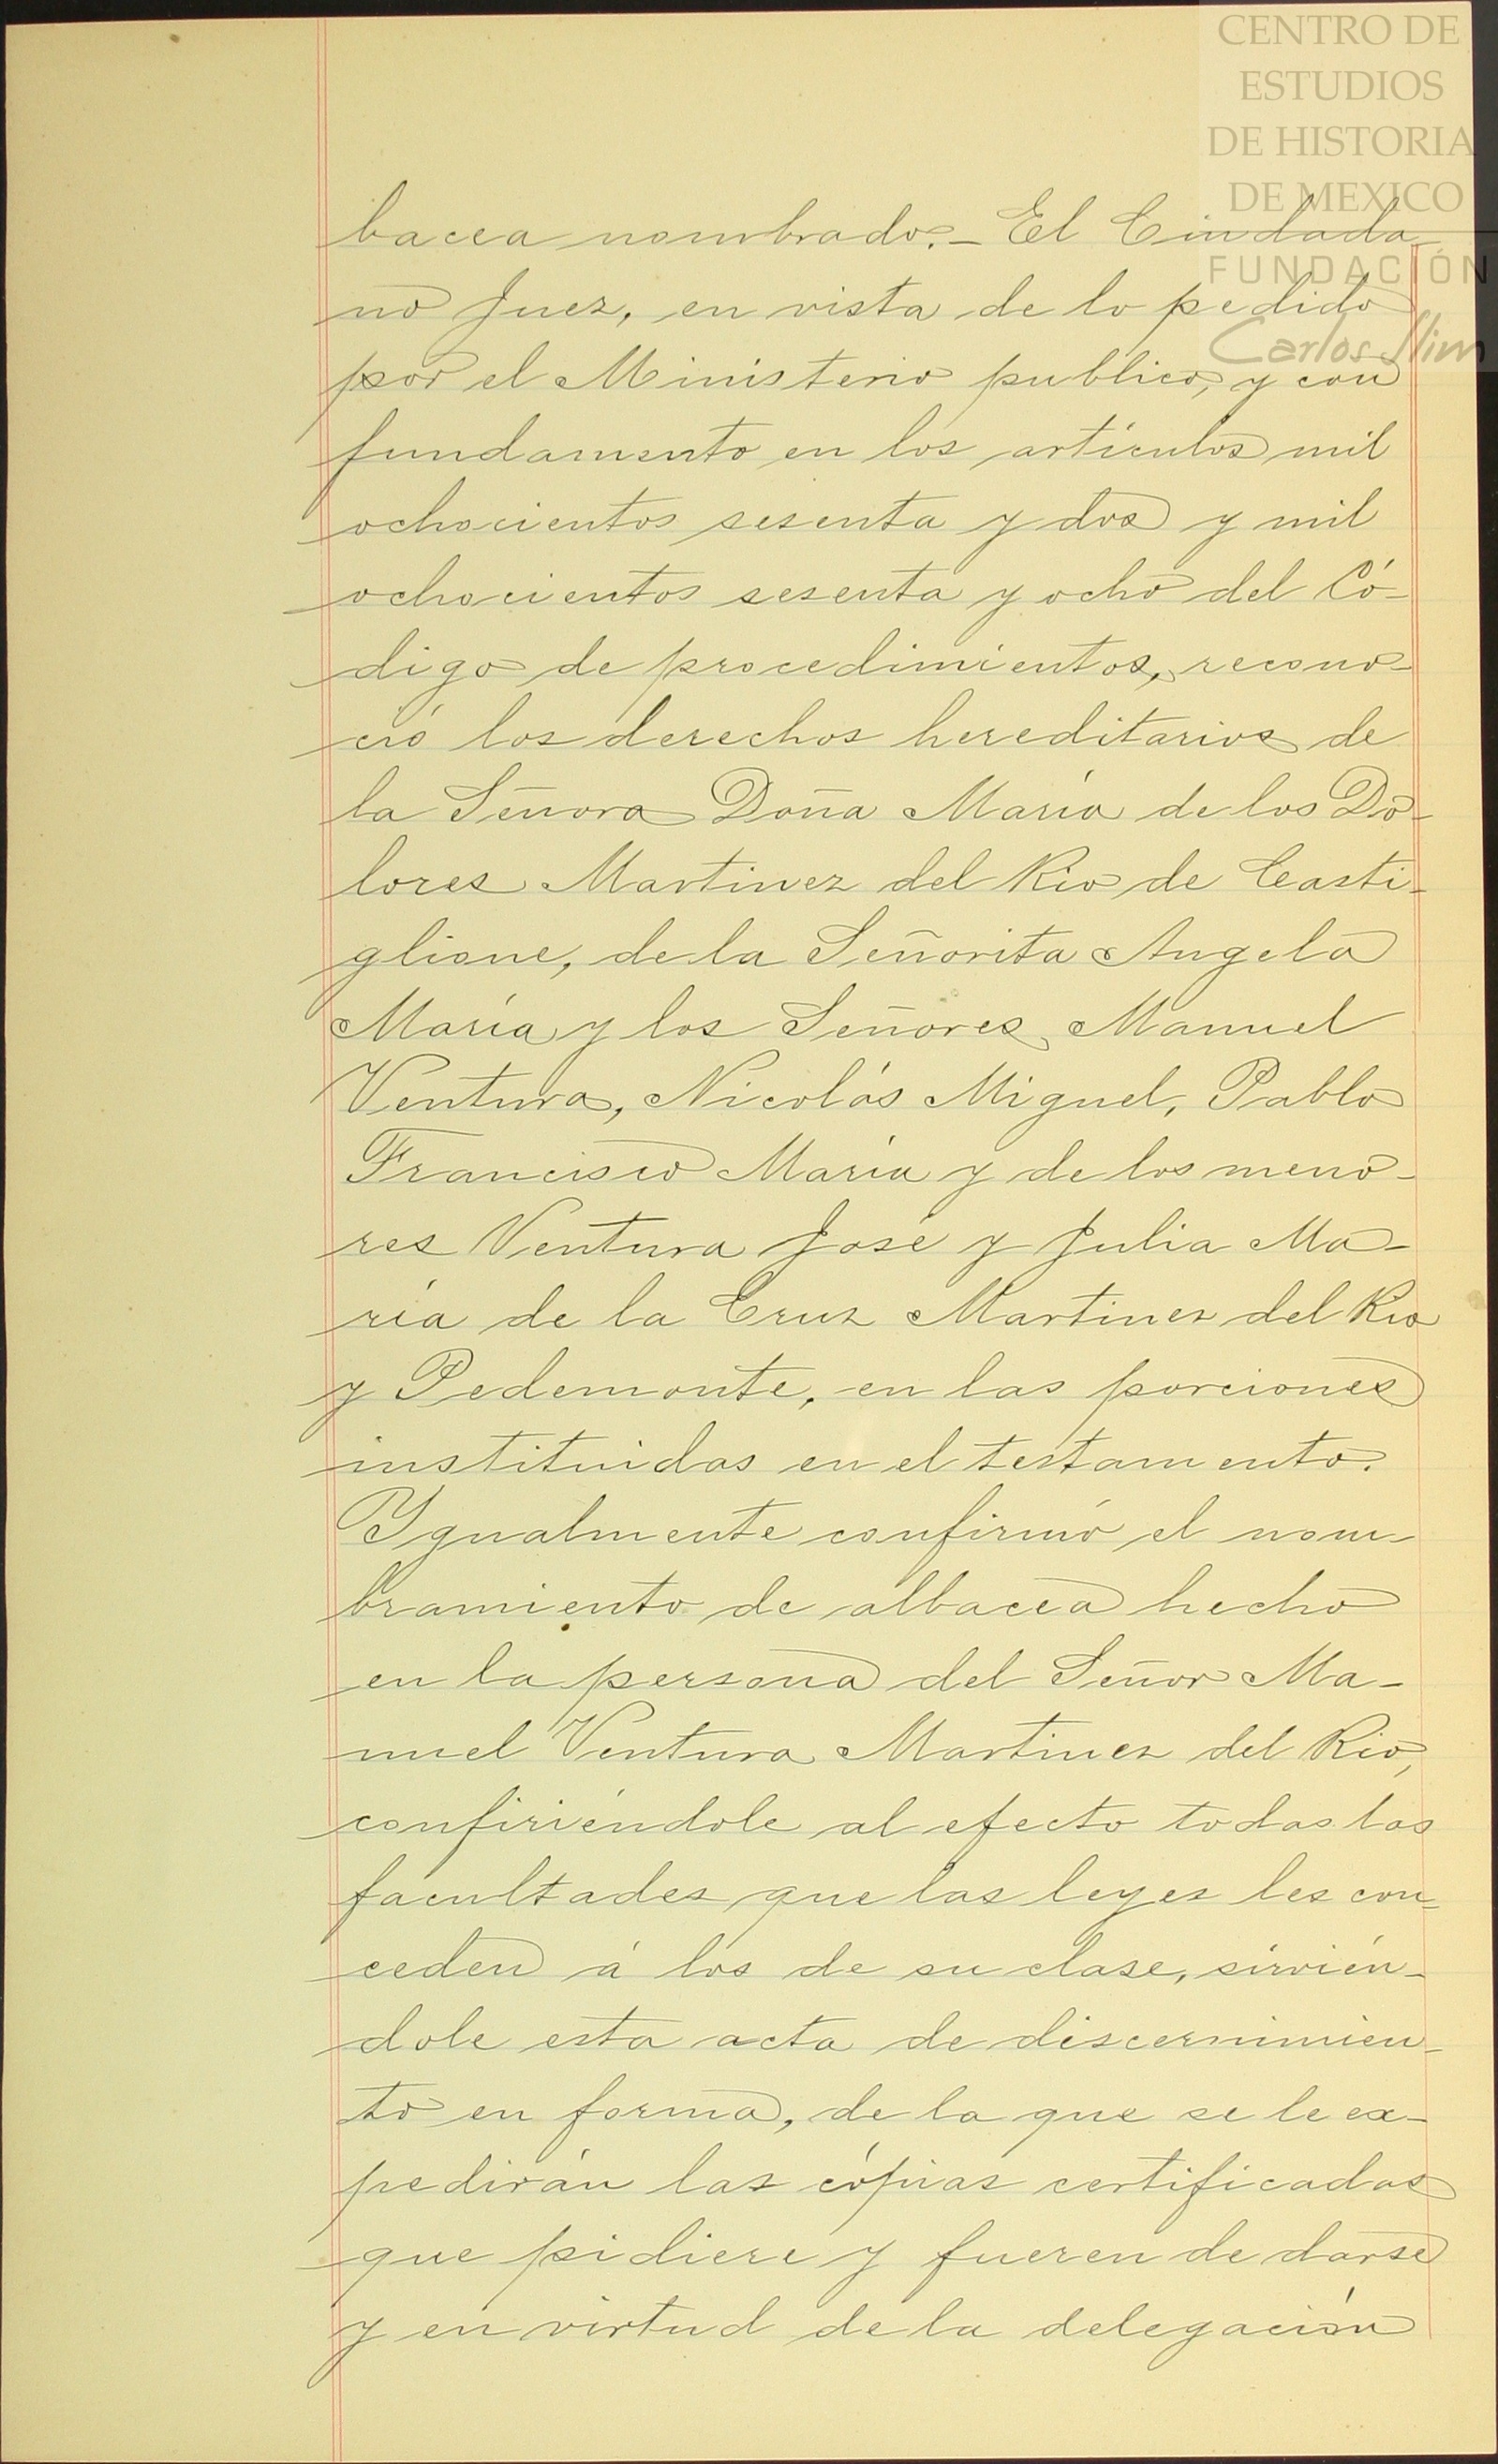 CENTRO DE
ESTUDIOS
DE HISTORIA
DE MEXICO
FUNDACIÓN
Carlos Slim
bacea nombrado.- El Ciudada
no Juez, en vista de lo pedido
por el Ministerio publico, y con
fundamento en los artículos mil
ochocientos sesenta y dos y mil
ochocientos sesenta y ocho del Có-
digo de procedimientos, recono-
ció los derechos hereditarios de
la Señora Doña María de los Do-
lores Martinez del Rio de Casti-
glione, de la Señorita Angela
María y los Señores Manuel
Ventura, Nicolás Miguel, Pablo
Francisco María y de los meno-
res Ventura José y Julia Ma-
ría de la Cruz Martinez del Rio
y Pedemonte, en las porciones
instituidas en el testamento.
Ygualmente confirmó el nom-
bramiento de albacea hecho
en la persona del Señor Ma-
nuel Ventura Martinez del Rio,
confiriéndole al efecto todas las
facultades que las leyes les con-
ceden á los de su clase, sirvién-
dole esta acta de discernimien-
to en forma, de la que se le ex-
pedirán las cópias certificadas
que pidiere y fueren de darse
y en virtud de la delegación